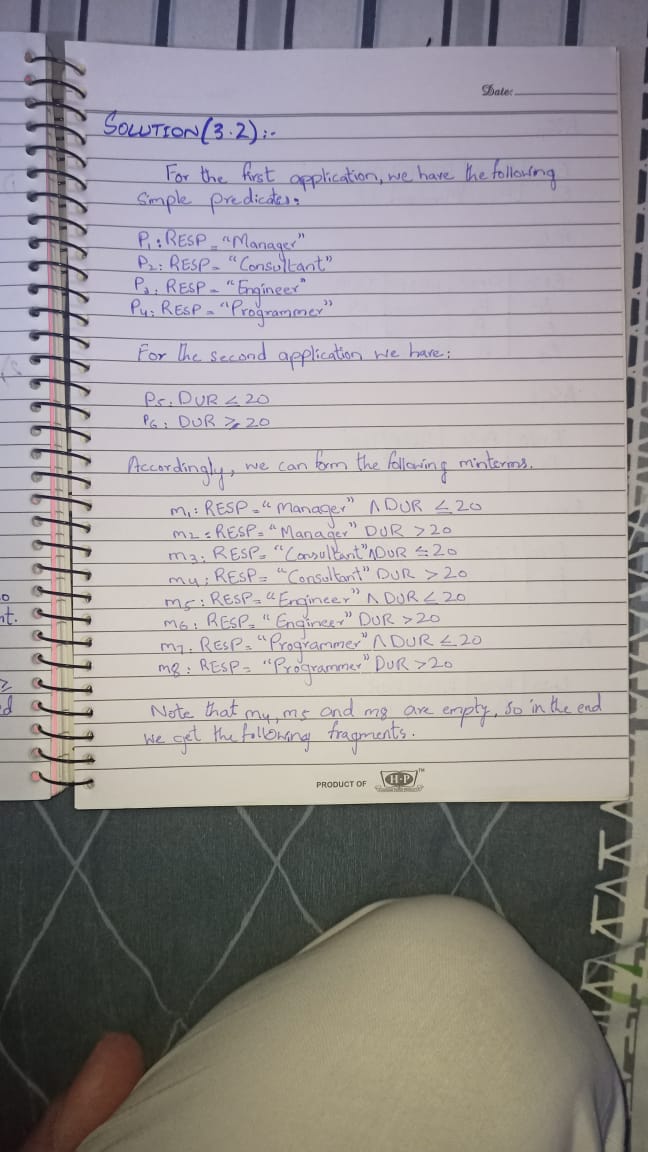 Date:
SOLUTION (3.2) :-
For the first application, we have the following
simple predicates:
P1 : RESP = "Manager"
P2 : RESP = "Consultant"
P3 : RESP = "Engineer"
P4 : RESP = "Programmer"
For the second application we have:
P5 : DUR < 20
P6 : DUR ≥ 20
Accordingly, we can form the following minterms.
m1 : RESP = "Manager" ∧ DUR ≤ 20
m2 : RESP = "Manager" DUR > 20
m3 : RESP = "Consultant" ∧ DUR ≤ 20
m4 : RESP = "Consultant" DUR > 20
m5 : RESP = "Engineer" ∧ DUR ≤ 20
m6 : RESP = "Engineer" DUR > 20
m7 : RESP = "Programmer" ∧ DUR ≤ 20
m8 : RESP = "Programmer" DUR > 20
Note that m4, m5 and m8 are empty, so in the end
we get the following fragments.
PRODUCT OF H-P TM